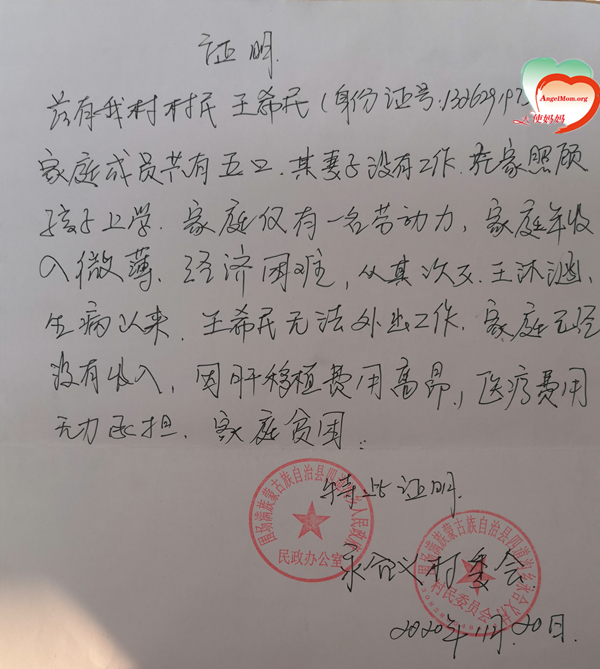 证明
AngelMom.org
天使妈妈
兹有我村村民王希民(身份证号:133629197
家庭成员共有五口.其妻子没有工作.在家照顾
孩子上学.家庭仅有一名劳动力,家庭年收
入微薄.经济困难,从其次女.王沐涵,
生病以来.王希民无法外出工作.家庭已经
没有收入,因肝移植费用高昂,医疗费用
无力承担.家庭贫困.
特此证明.
围场满族蒙古族自治县四道沟乡人民政府
民政办公室
围场满族蒙古族自治县四道沟乡永合义村
村民委员会
永合义村委会
2020年11月20日.